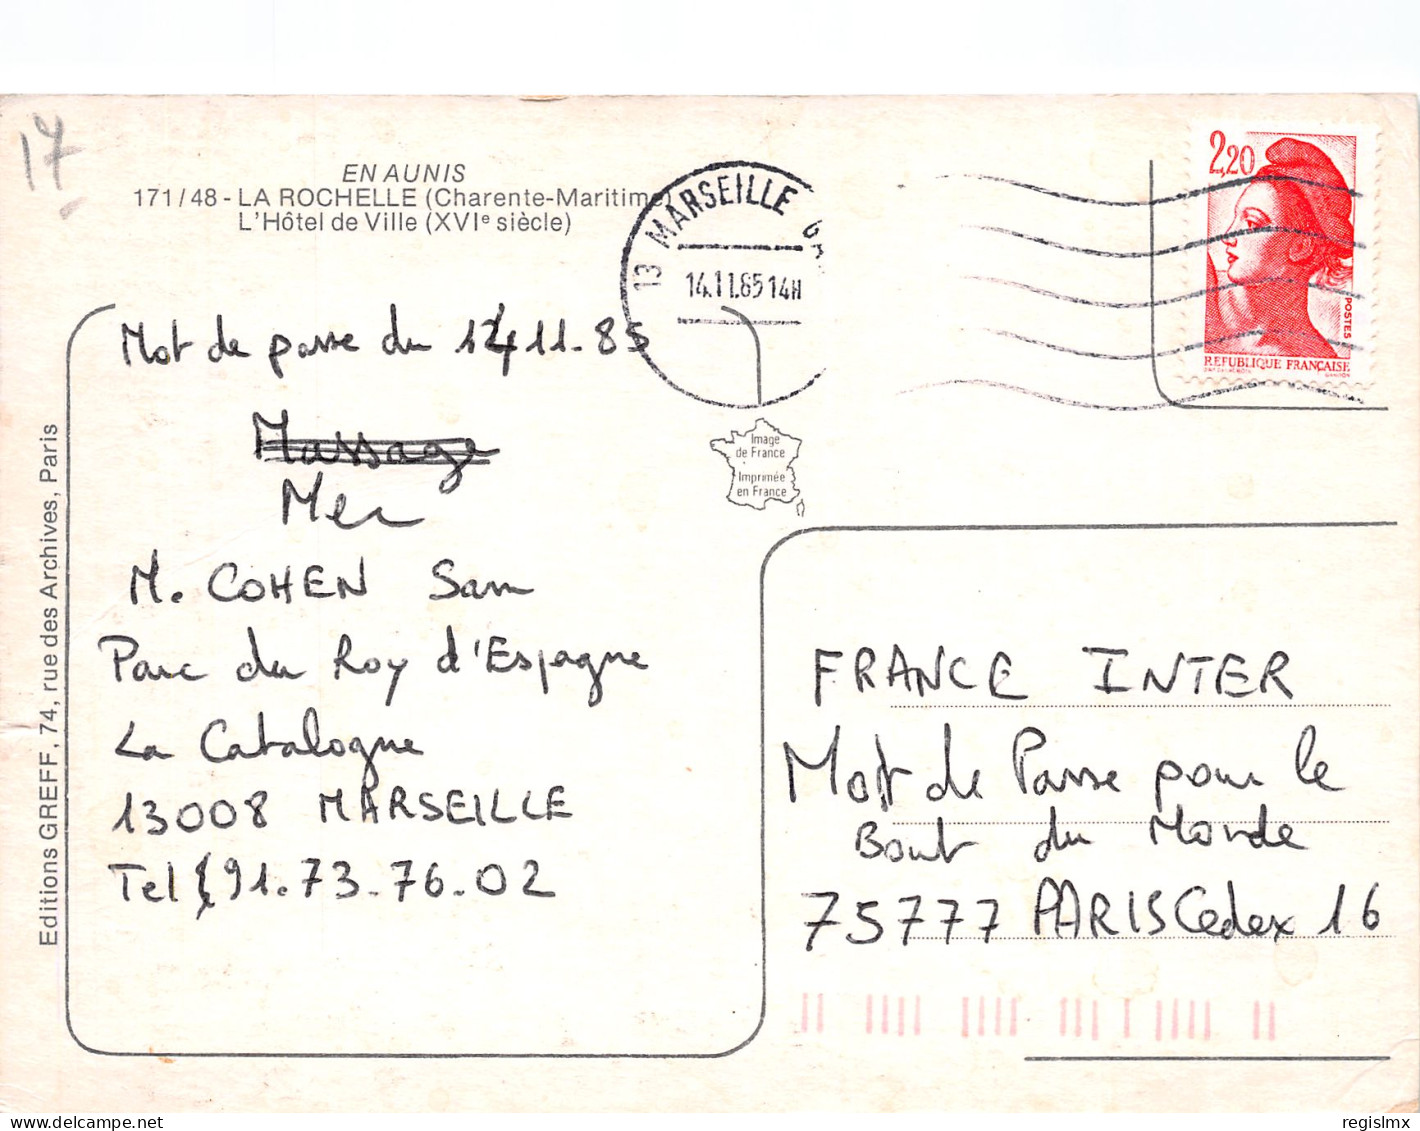 17
EN AUNIS
171/48 - LA ROCHELLE (Charente-Maritime)
L'Hôtel de Ville (XVIe siècle)
13 MARSEILLE
14.11.85 14H
2,20
POSTES
REPUBLIQUE FRANÇAISE
Mot de passe du 14 11.85
Massage
Mer
M. COHEN Sam
Parc du Roy d'Espagne
La Catalogne
13008 MARSEILLE
Tel 91.73.76.02
Image
de France
Imprimée
en France
FRANCE INTER
Mot de Passe pour le
Bout du Monde
75777 PARIS Cedex 16
Editions GREFF, 74, rue des Archives, Paris
delcampe.net
regislmx